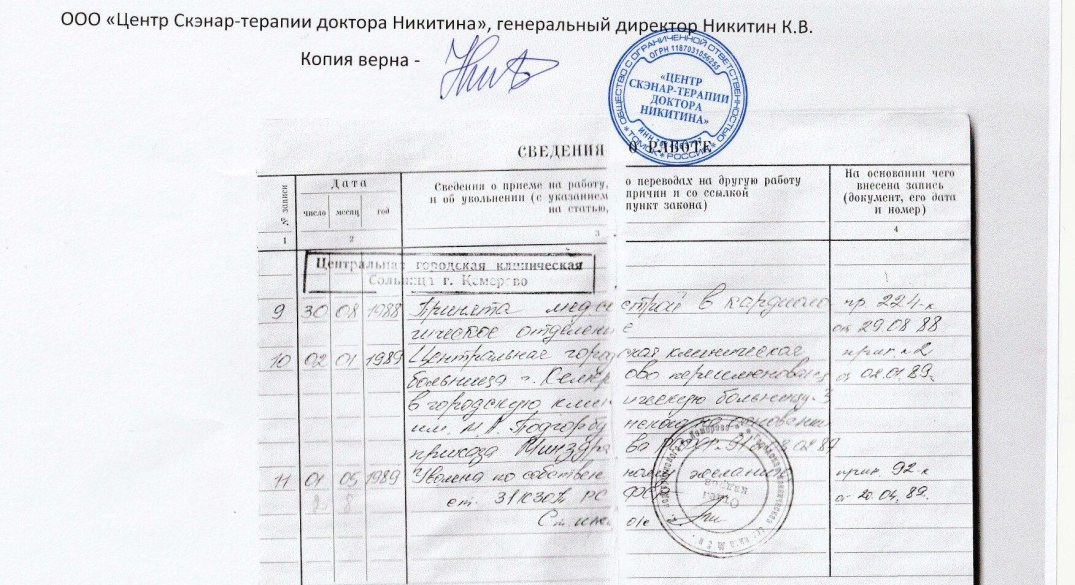 ООО «Центр Скэнар-терапии доктора Никитина», генеральный директор Никитин К.В.
Копия верна -
ОБЩЕСТВО С ОГРАНИЧЕННОЙ ОТВЕТСТВЕННОСТЬЮ
ОГРН 1187031056255
«ЦЕНТР
СКЭНАР-ТЕРАПИИ
ДОКТОРА
НИКИТИНА»
ИНН
ТОМСК * РОССИЯ
СВЕДЕНИЯ О РАБОТЕ
№ записи
Дата
число месяц год
Сведения о приеме на работу, о переводах на другую работу
и об увольнении (с указанием причин и со ссылкой
на статью, пункт закона)
На основании чего
внесена запись
(документ, его дата
и номер)
1 2 3 4
Центральная городская клиническая
больница г. Кемерово
9 30 08 1988 Принята медсестрой в кардиоло пр 224-к
гическое отделение от 29.08 88
10 02 01 1989 Центральная городская клиническая прик. 2
больница г. Кемерово переименована от 02.01.89г
в городскую клиническую больницу
им. М.А. Подгорбунского на основании
приказа Минздрава
11 01 05 1989 Уволена по собственному желанию прик 92-к
ст. 31 КЗОТ РСФСР от 20.04.89.
Ст. инсп. о/к
Отдел
кадров